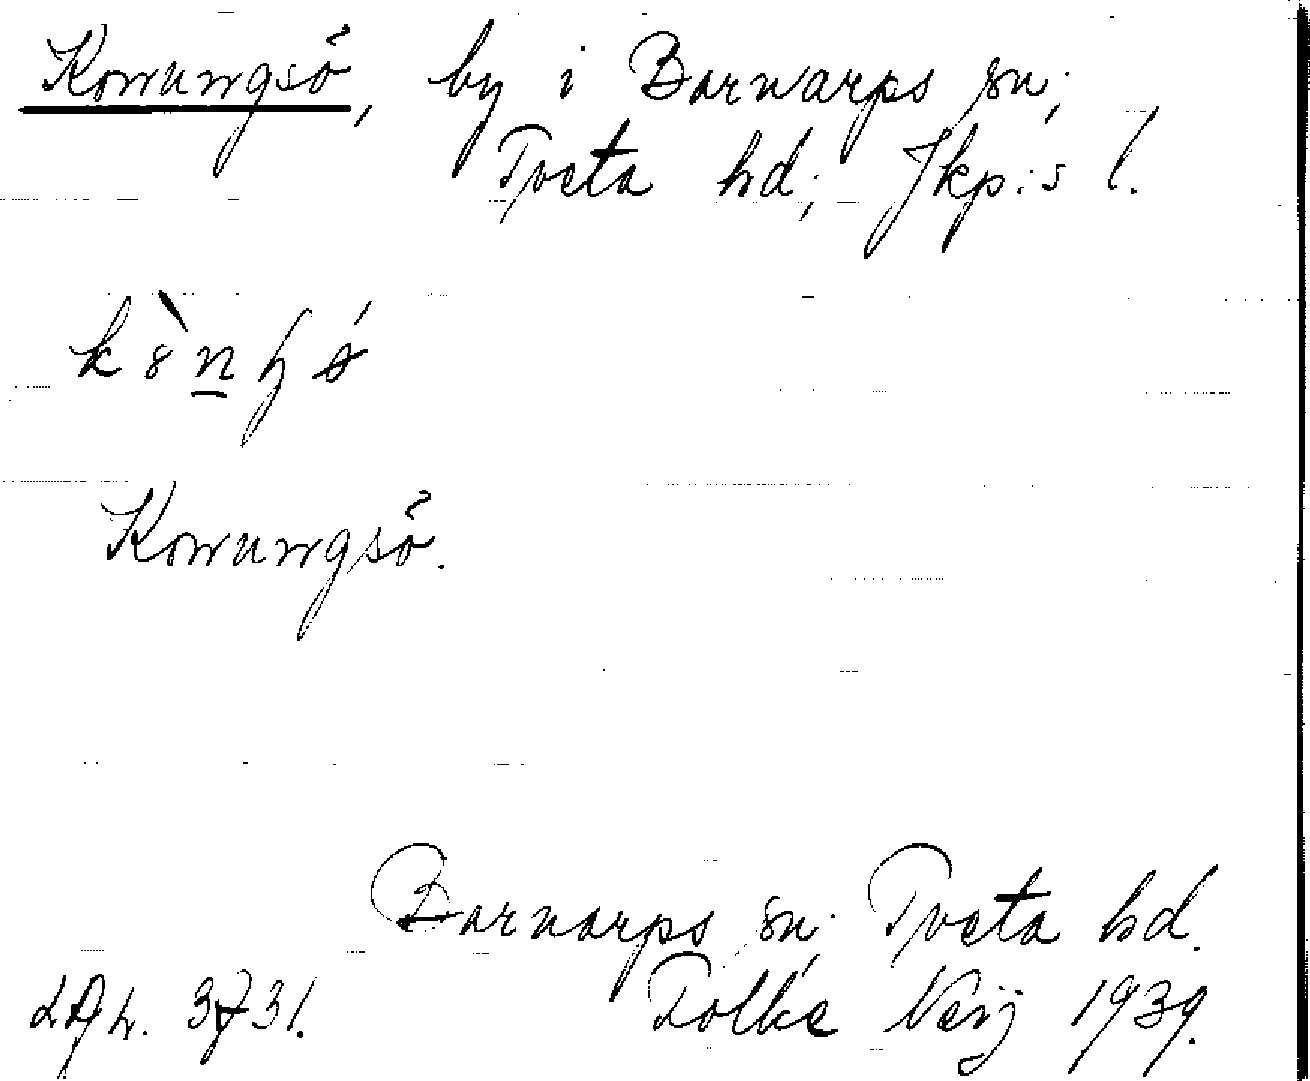 Konungsö, by i Barnarps sn;
Tveta hd; Jkp:s l.
Konungsö.
Barnarps sn; Tveta hd.
Folke Neij 1939.